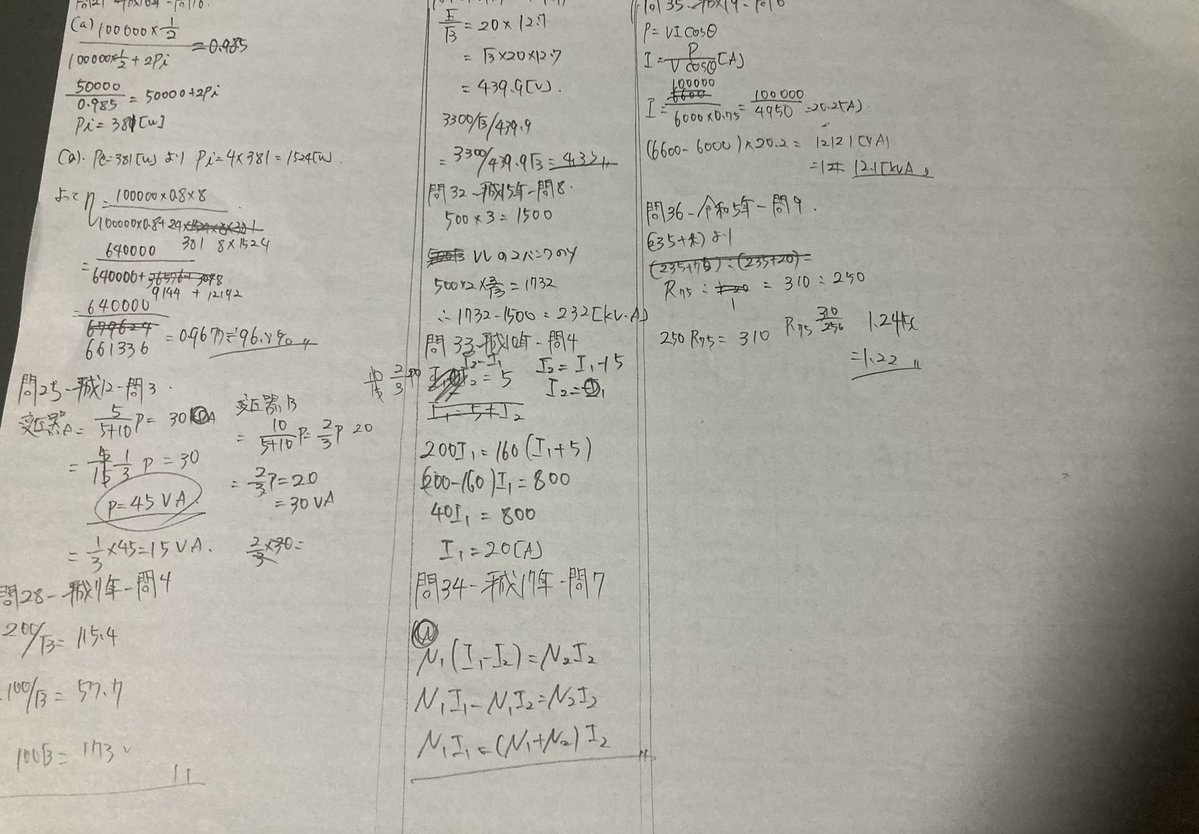 (a) 100000×1/2 / 100000×1/2 + 2Pi = 0.985
50000/0.985 = 50000+2Pi
Pi = 381[W]
(a). Pc=381[W] より Pi=4×381=1524[W].
よって η = 100000×0.8×8
100000×0.8+24×
381 8×1524
= 640000
640000+
9144 + 12192
= 640000
661336 = 0.967
問25-平成12-問3.
変圧器A = 5/5+10 P = 30
= 1/3 P = 30
P=45VA
= 1/3×45=15VA.
変圧器B
= 10/5+10 P = 2/3 P 20
= 2/3 P=20
= 30VA
2/3×30=
問28-平成7年-問4
200/√3 = 115.4
100/√3 = 57.7
100√3 = 173
E/√3 = 20×12.7
= √3×20×12.7
= 439.9[V].
3300/√3/439.9
= 3300/439.9√3 = 4.33
問32-平成15年-問8.
500×3=1500
VVの2バンクのY
500×2×3/√3 = 1732
∴1732-1500=232[kV・A]
問33-平成10年-問4
I2-I1
= 5
I2=I1+5
200I1=160(I1+5)
(200-160)I1=800
40I1=800
I1=20[A]
問34-平成17年-問7
N1(I1-I2)=N2I2
N1I1-N1I2=N2I2
N1I1=(N1+N2)I2
P=VIcosθ
I=P/Vcosθ[A]
I= 100000/6000×0.75 = 100000/4950 =20.2[A].
(6600-6000)×20.2= 12121[VA]
12.1[kVA]
問36-令和5年-問9.
(235+t)より
(235+75):(235+20)=
R75: 1 = 310:250
250R75=310 R75 310/250 1.24
=1.22